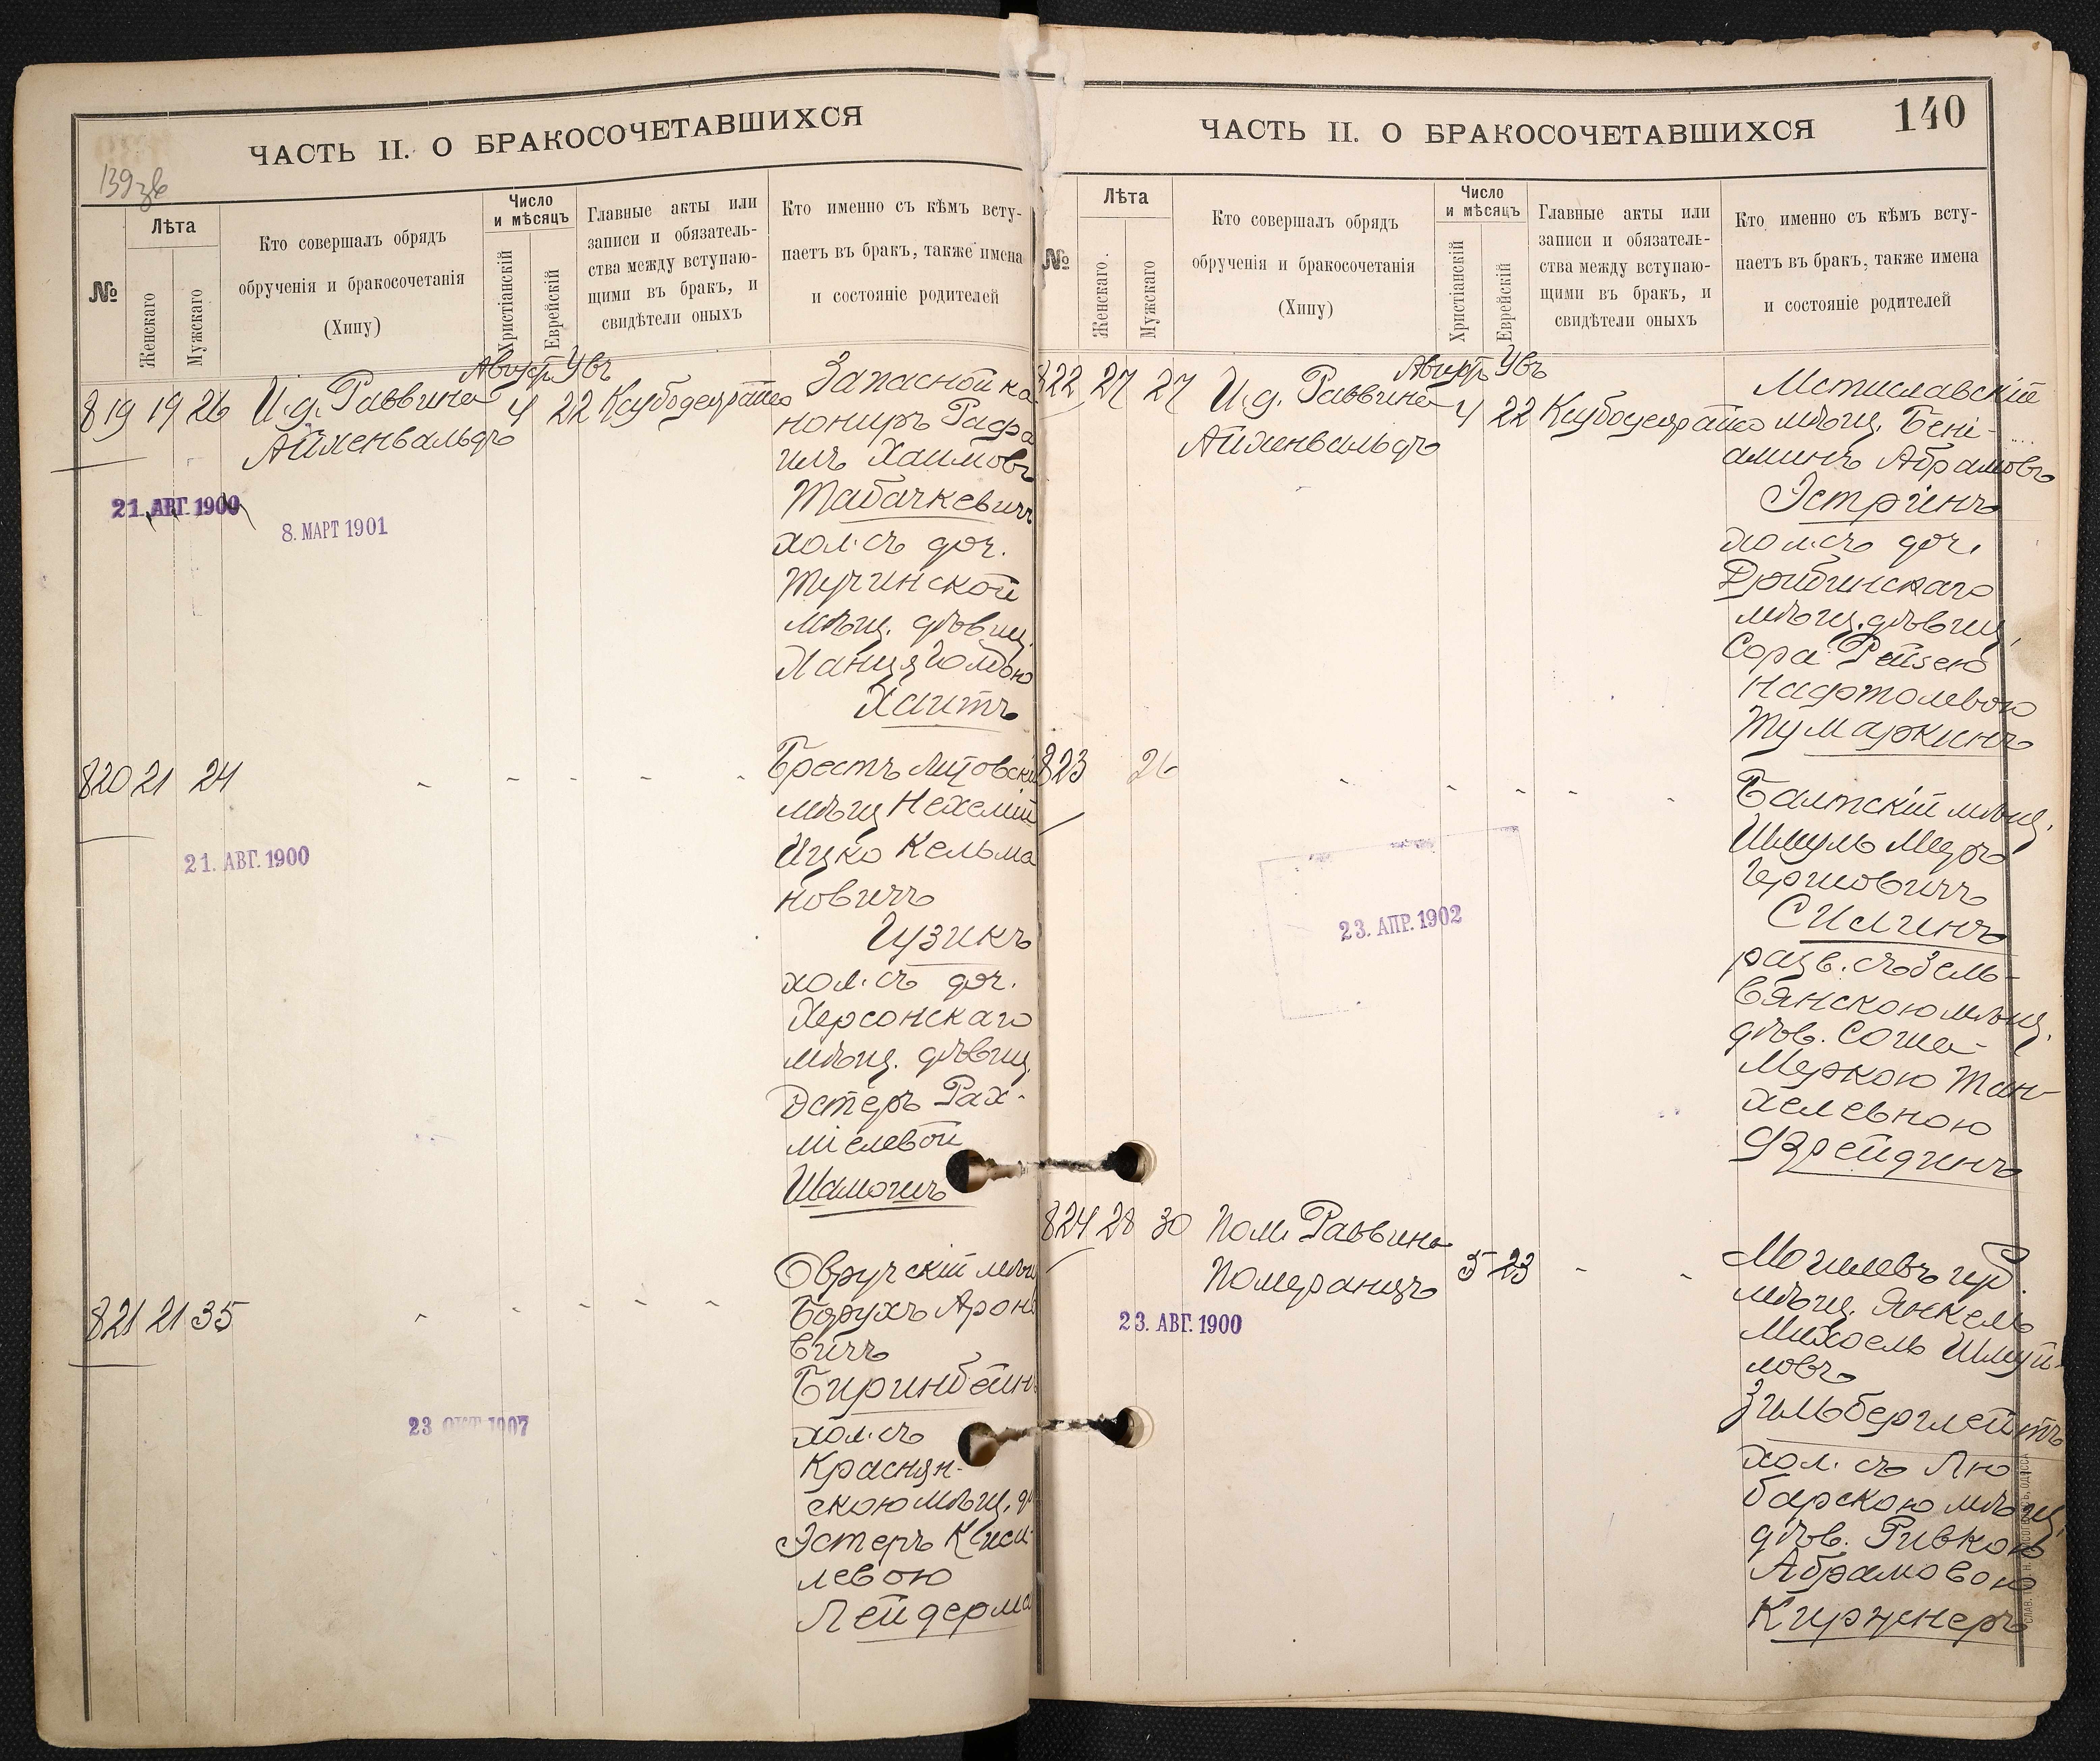 ЧАСТЬ II. О БРАКОСОЧЕТАВШИХСЯ
№
Лѣта
Женскаго
Мужскаго
Кто совершалъ обрядъ
обрученія и бракосочетанія
(Хипу)
Число
и мѣсяцъ
Христіанскій
Еврейскій
Главные акты или
записи и обязатель-
ства между вступаю-
щими въ бракъ, и
свидѣтели оныхъ
Кто именно съ кѣмъ всту-
паетъ въ бракъ, также имена
и состояніе родителей
819 19 26 И.д. Раввина 4 22
Айхенвальдъ
21. АВГ. 1900
8. МАРТ 1901
Запасной ка
нониръ Рафа
илъ Хаимовъ
Табачкевичъ
хол. съ доч.
Тучинской
мѣщ. дѣвиц.
Хаитъ
820 21 24
21. АВГ. 1900
Брестъ Литовскі
мѣщ Нехемій
Ицко Кельма
новичъ
Гузикъ
хол. съ доч.
Херсонскаго
мѣщ. дѣвиц.
Эстеръ Рах-
міелевой
821 21 35
23 ОКТ 1907
Овручскій мѣщ
Борухъ Арон
вичъ
Биринбейн
хол. съ
Краснян-
скою мѣщ. д
Эстеръ
левою
Лейдерма
ЧАСТЬ II. О БРАКОСОЧЕТАВШИХСЯ
140
№
Лѣта
Женскаго.
Мужскаго
Кто совершалъ обрядъ
обрученія и бракосочетанія
(Хипу)
Число
и мѣсяцъ
Христіанскій
Еврейскій
Главные акты или
записи и обязатель-
ства между вступаю-
щими въ бракъ, и
свидѣтели оныхъ
Кто именно съ кѣмъ всту-
паетъ въ бракъ, также имена
и состояніе родителей
822 27 27 И.д. Раввина 4 22
Айхенвальдъ
Мстиславскій
мѣщ. Бені-
аминъ Абрамовъ
Эстринъ
хол. съ доч.
Дрибинскаго
мѣщ. дѣвиц.
Сора Рейзею
Нафтолевою
Тумаркинъ
823 26
23. АПР. 1902
Балтскій мѣщ.
Шмуль Мееръ
Гершовичъ
Силинъ
разв. съ Зель-
вянскою мѣщ.
дѣв. Соша-
Меркою Тан-
хелевною
824 28 30 Пом. Раввина
Померанцъ 5 23
23. АВГ. 1900
Могилевъ губ.
мѣщ. Янкель
Михоель Шмуй-
ловъ
Зильберглейтъ
хол. съ Лю
барскою мѣщ.
дѣв. Ривкою
Абрамовою
Киржнеръ